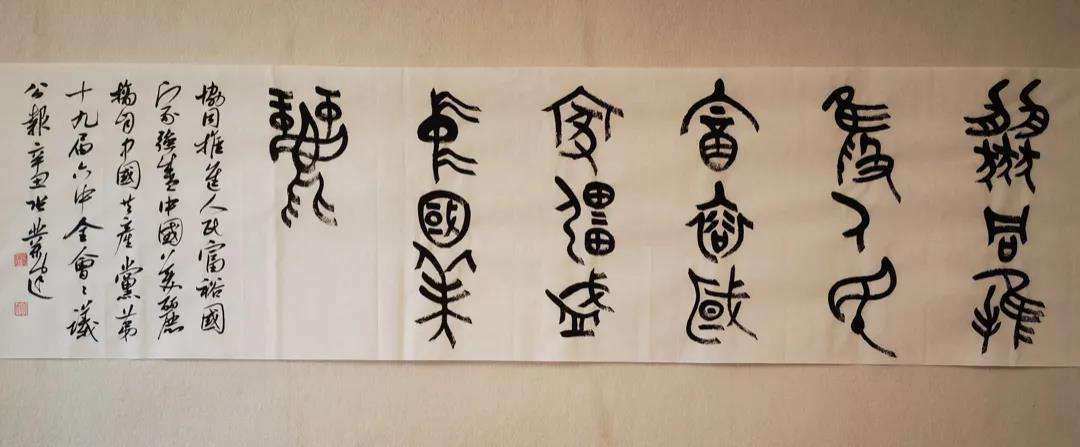 協同推
進人民
富裕國
家彊盛
中國美
麗
協同推進人民富裕國
家强盛中國美麗
摘自中國共產黨第
十九届六中全會〻議
公報辛丑